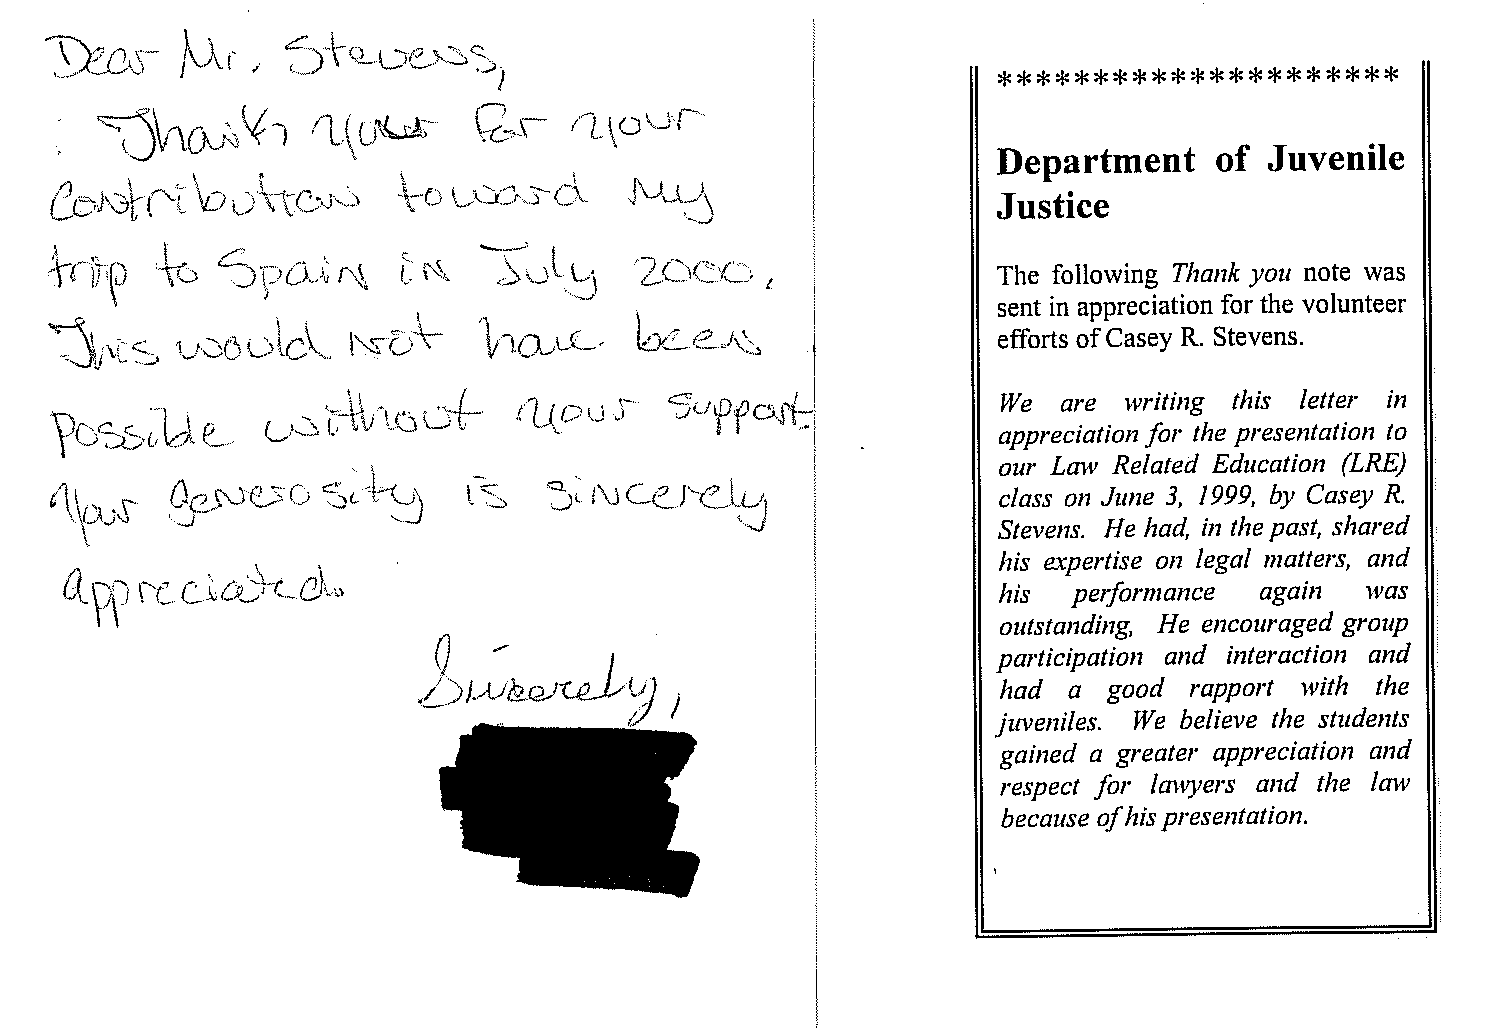 Dear Mr. Stevens,
Thank you for your
contribution toward my
trip to Spain in July 2000.
This would not have been
possible without your support.
Your generosity is sincerely
appreciated.
Sincerely,
*********************
Department of Juvenile
Justice
The following Thank you note was
sent in appreciation for the volunteer
efforts of Casey R. Stevens.
We are writing this letter in
appreciation for the presentation to
our Law Related Education (LRE)
class on June 3, 1999, by Casey R.
Stevens. He had, in the past, shared
his expertise on legal matters, and
his performance again was
outstanding, He encouraged group
participation and interaction and
had a good rapport with the
juveniles. We believe the students
gained a greater appreciation and
respect for lawyers and the law
because of his presentation.